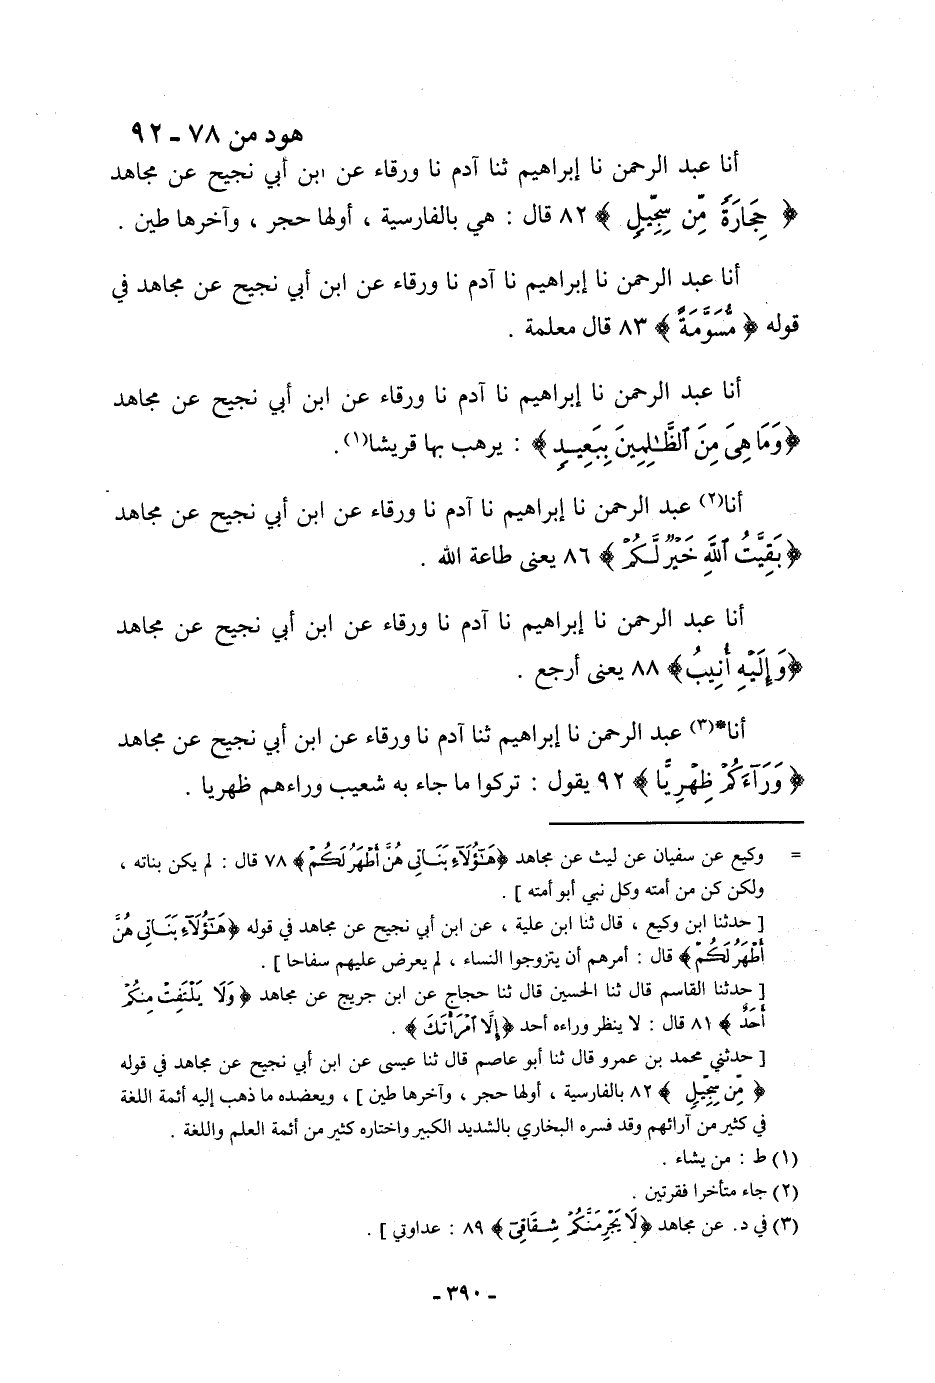 هود من ٧٨ ـ ٩٢
أنا عبد الرحمن نا إبراهيم ثنا آدم نا ورقاء عن ابن أبي نجيح عن مجاهد
﴿ حِجَارَةً مِّن سِجِّيلٍ ﴾ ٨٢ قال : هي بالفارسية ، أولها حجر ، وآخرها طين .
أنا عبد الرحمن نا إبراهيم نا آدم نا ورقاء عن ابن أبي نجيح عن مجاهد في
قوله ﴿ مُّسَوَّمَةً ﴾ ٨٣ قال معلمة .
أنا عبد الرحمن نا إبراهيم نا آدم نا ورقاء عن ابن أبي نجيح عن مجاهد
﴿وَمَا هِىَ مِنَ ٱلظَّٰلِمِينَ بِبَعِيدٍ ﴾ : يرهب بها قريشا(١).
أنا(٢) عبد الرحمن نا إبراهيم نا آدم نا ورقاء عن ابن أبي نجيح عن مجاهد
﴿بَقِيَّتُ ٱللَّهِ خَيْرٌ لَّكُمْ ﴾ ٨٦ يعنى طاعة الله .
أنا عبد الرحمن نا إبراهيم نا آدم نا ورقاء عن ابن أبي نجيح عن مجاهد
﴿وَإِلَيْهِ أُنِيبُ﴾ ٨٨ يعنى أرجع .
أنا*(٣) عبد الرحمن نا إبراهيم ثنا آدم نا ورقاء عن ابن أبي نجيح عن مجاهد
﴿ وَرَآءَكُمْ ظِهْرِيًّا ﴾ ٩٢ يقول : تركوا ما جاء به شعيب وراءهم ظهريا .
= وكيع عن سفيان عن ليث عن مجاهد ﴿هَٰٓؤُلَآءِ بَنَاتِى هُنَّ أَطْهَرُ لَكُمْ﴾ ٧٨ قال : لم يكن بناته ،
ولكن كن من أمته وكل نبي أبو أمته ] .
[ حدثنا ابن وكيع ، قال ثنا ابن علية ، عن ابن أبي نجيح عن مجاهد في قوله ﴿هَٰٓؤُلَآءِ بَنَاتِى هُنَّ
أَطْهَرُ لَكُمْ﴾ قال : أمرهم أن يتزوجوا النساء ، لم يعرض عليهم سفاحا ] .
[ حدثنا القاسم قال ثنا الحسين قال ثنا حجاج عن ابن جريج عن مجاهد ﴿ وَلَا يَلْتَفِتْ مِنكُمْ
أَحَدٌ ﴾ ٨١ قال : لا ينظر وراءه أحد ﴿إِلَّا ٱمْرَأَتَكَ ﴾ .
[ حدثني محمد بن عمرو قال ثنا أبو عاصم قال ثنا عيسى عن ابن أبي نجيح عن مجاهد في قوله
﴿ مِّن سِجِّيلٍ ﴾ ٨٢ بالفارسية ، أولها حجر ، وآخرها طين ] ، ويعضده ما ذهب إليه أئمة اللغة
في كثير من آرائهم وقد فسره البخاري بالشديد الكبير واختاره كثير من أئمة العلم واللغة .
(١) ط : من يشاء .
(٢) جاء متأخرا فقرتين .
(٣) في د. عن مجاهد ﴿لَا يَجْرِمَنَّكُمْ شِقَاقِىٓ ﴾ ٨٩ : عداوتي ] .
ـ ٣٩٠ ـ